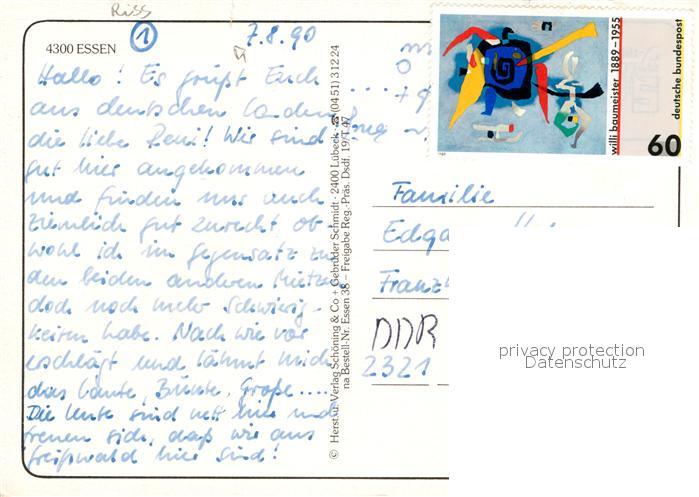 Riss
1
7.8.90
4300 ESSEN
Hallo! Es grüßt Euch
aus deutschen Landen
die liebe Reni! Wir sind
gut hier angekommen
und finden uns auch
ziemlich gut zurecht ob
wohl ich im Gegensatz zu
den beiden anderen
doch noch mehr Schwierig-
keiten habe. Nach wie vor
erschlägt und lähmt mich
das Laute, Bunte, Große....
Die Leute sind nett hier und
freuen sich, daß wir aus
Greifswald hier sind!
© Herst. u. Verlag Schöning & Co + Gebrüder Schmidt · 2400 Lübeck · ☎ (04 51) 3 12 24
na Bestell-Nr. Essen 38 – Freigabe Reg.-Präs. Dsdf. 19/T 47
willi baumeister 1889–1955
deutsche bundespost
60
Familie
Edga
Franz
DDR
2321
privacy protection
Datenschutz